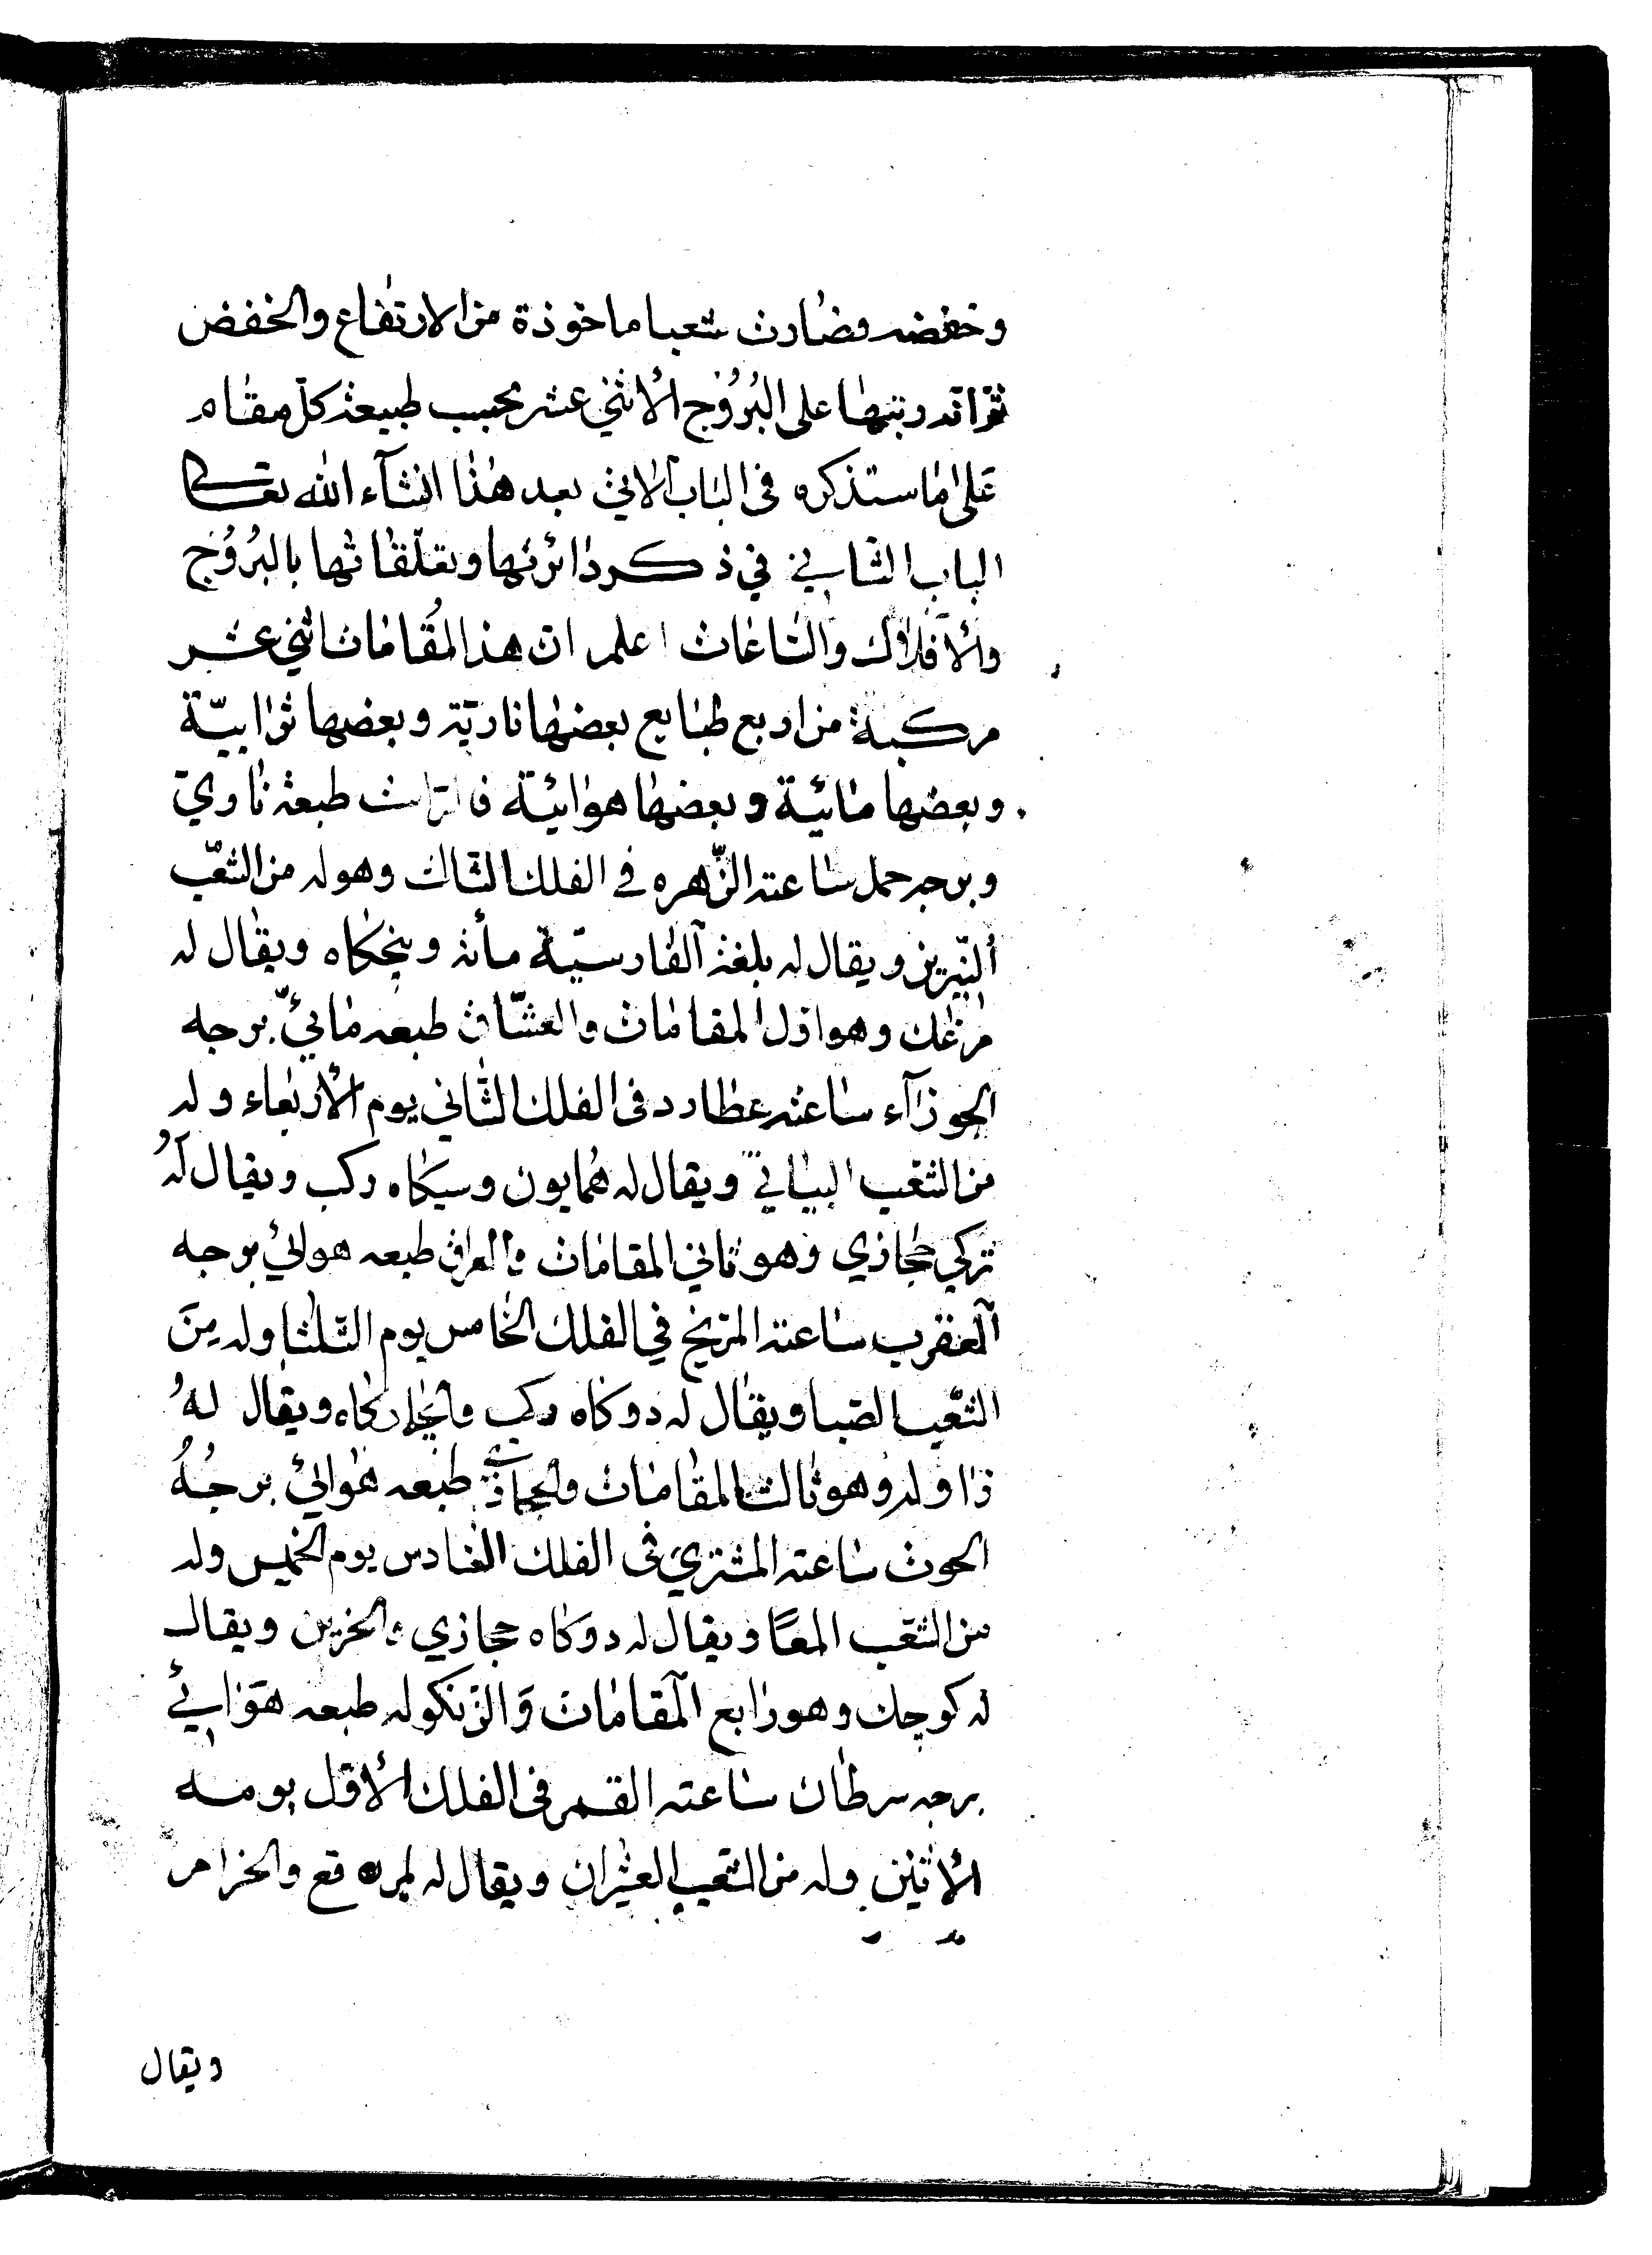 وخفضه وصارت شعبا ماخوذة من الارتفاع والخفض
ثم انه رتبها على البُرُوُج الأثني عشر بحسب طبيعة كلّ مقام
على ما ستذكره فى الباب الاتي بعد هذا انشآء الله تعالى
الباب الثاني في ذكر دائرتها وتعلّقاتها بالبُرُوُج
والأفلاك والساعات اعلم ان هذا المُقامات اثني عشر
مركبة من اربع طبايع بعضها نارية وبعضها ترابيّة
وبعضها مائية وبعضها هوائية فالراست طبعة ناري
وبرجه حمل ساعته الزّهره في الفلك الثالث وهو له من الشعّب
النّيرين ويقال له بلغة الفارسيّة مأنة وپنجكاه ويقال له
مزغك وهو اول المقامات والعشّاق طبعه مائيّ برجه
الجوزآء ساعته عطارد فى الفلك الثاني يوم الأربعاء وله
من الشعب البياتي ويقال له همايون وسيكاه ركب ويقال لهُ
تركي حجازي وهو ثاني المقامات والعراق طبعه هوائي برجه
العقرب ساعته المريخ في الفلك الخامس يوم الثلثا وله مِنَ
الشّعب الصبا ويقال له دوكاه ركب والجاركاه ويقال لهُ
زاوله وهو ثالث المقامات والحجازي طبعه هوائي برجُهُ
الحوت ساعته المشتري فى الفلك السادس يوم الخميس وله
من الشعب المعًا ويقال له دوكاه حجازي والحزين ويقال
له كوچك وهو رابع المقامات والزنكوله طبعه هوائي
برجه سرطان ساعته القمر فى الفلك الأول يومه
الأثنين وله من الشعب العشيران ويقال له لمبرقع والخزام
ويقال